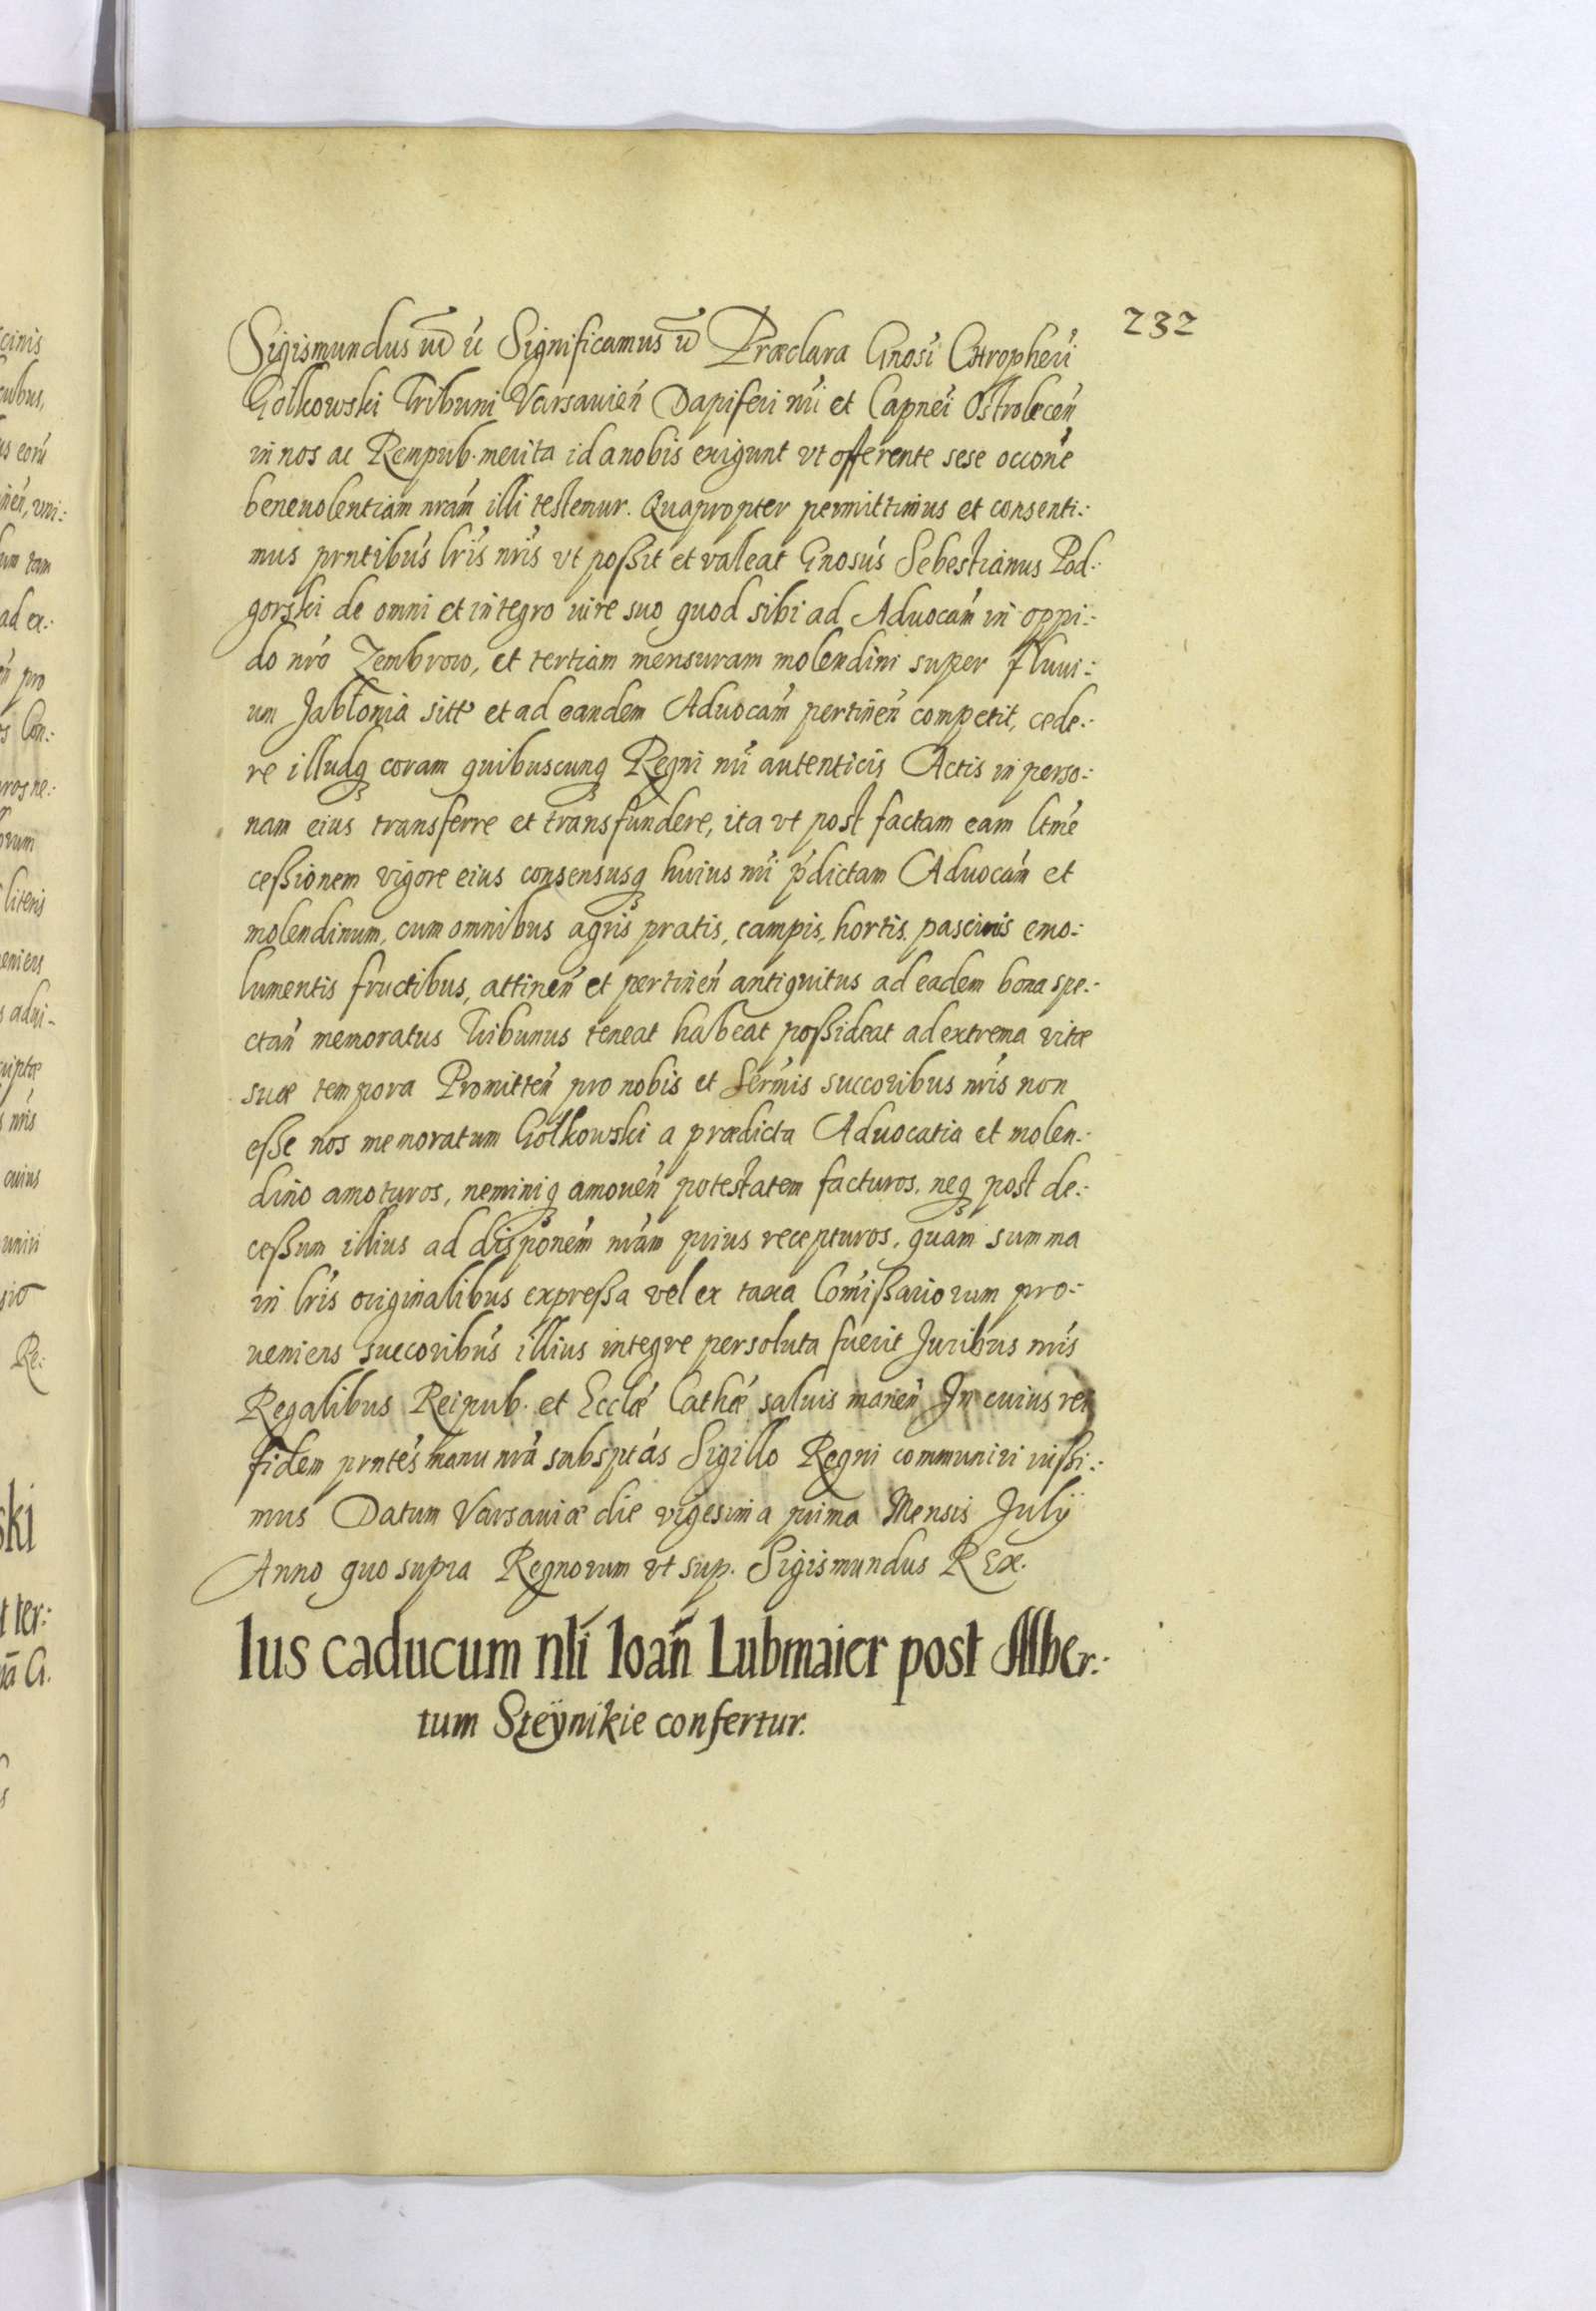 232
Sigismundus etc̃ ú Significamus etc̃ Præclara Gnosi Cḣropheri
Golkowski Tribuni Varsavień Dapiferi nri et Capnei Ostrolecen
in nos ac Rempub. merita id a nobis exigunt vt offerente sese occone
benevolentiam nram illi testemur. Quapropter permittimus et consenti:
mus prntibus lris nris vt poßit et valeat Gnosus Sebestianus Pod:
gorski de omni et integro iure suo quod sibi ad Advocam in oppi:
do nro Zembrow, et tertiam mensuram molendini super fluvi:
um Jabłonia sitt et ad eandem Advocam pertinen competit, cede:
re illudq coram quibuscunq Regni nri autenticis Actis in perso:
nam eius transferre et transfundere, ita vt post factam eam ltme
ceßionem vigore eius consensusq huius nri pdictam Advocam et
molendinum, cum omnibus agris pratis, campis, hortis pascuis emo:
lumentis fructibus, attinen et pertinen antiquitus ad eadem bona spe:
ctan memoratus Tribunus teneat habeat poßideat ad extrema vitæ
suæ tempora Promitten pro nobis et Sermis succoribus nris non
eße nos memoratum Golkowski a prædicta Advocatia et molen:
dino amoturos, neminiq amoven potestatem facturos, neq post de:
ceßum illius ad disponem nram prius recepturos, quam summa
in lris originalibus expreßa vel ex taxa Comißariorum pro:
veniens succoribus illius integre persoluta fuerit Juribus nris
Regalibus Reipub. et Ecclæ Cathæ salvis manen In cuius rei
fidem prntes manu nra subsptas Sigillo Regni communiri iußi:
mus Datum Varsaviæ die vigesima prima Mensis Julÿ
Anno quo supra Regnorum vt sup. Sigismundus REX.
Ius caducum nli Ioan Lubmaier post Alber:
tum Steÿnikie confertur.